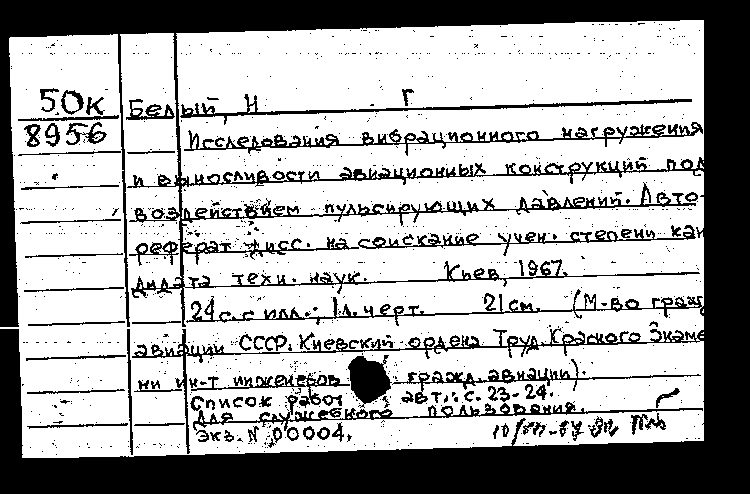 50к Белый, Н Г
8956 Исследования вибрационного нагружения
и выносливости авиационных конструкций под
воздействием пульсирующих давлений. Авто-
реферат дисс. на соискание учен. степени кан
дидата техн. наук. Киев, 1967.
24 с. с илл.; 1 л. черт. 21 см. (М-во гражд
авиации СССР. Киевский ордена Труд. Красного Знаме
ни ин-т инженеров гражд. авиации).
Список работ авт.: с. 23-24.
Для служебного пользования.
Экз. N 00004.